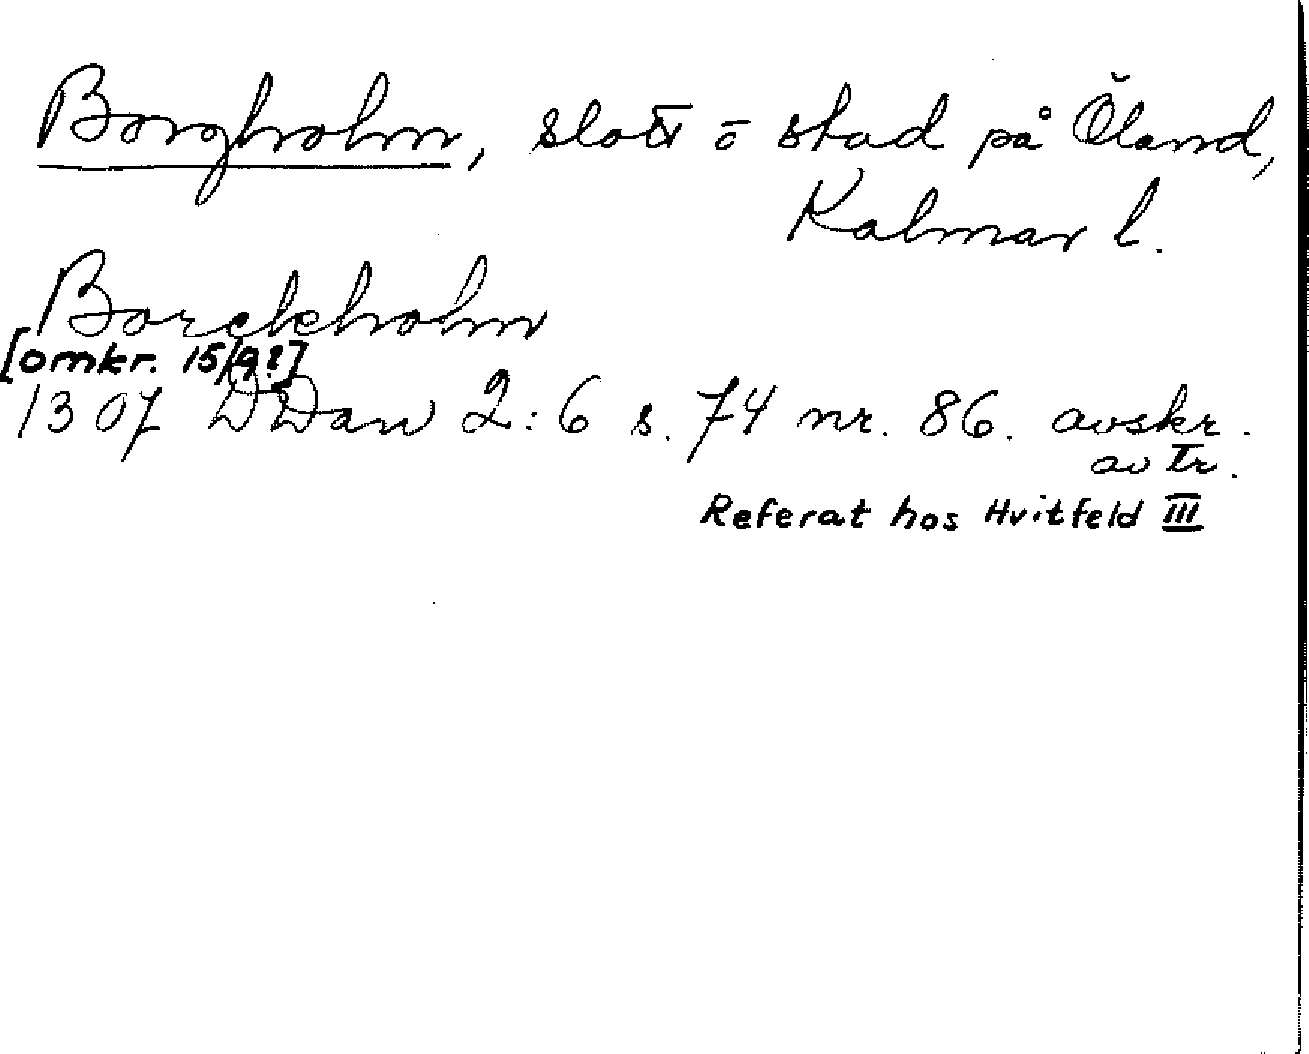 Borgholm, slott o stad på Öland,
Kalmar l.
Borckholm
[omkr. 15/9?]
1307 DDan 2:6 s. 74 nr. 86. avskr.
av tr.
Referat hos Hvitfeld III